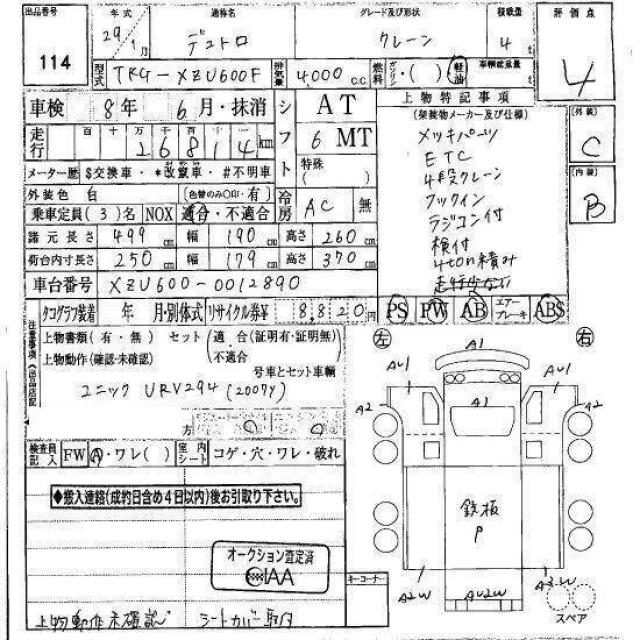 出品番号 年式 通称名 グレード及び形状 積載量 評価点
114 29/1月 デュトロ クレーン 4 t 4
型式 TKG-XZU600F 排気量 4,000 c.c. 燃料 ガソリン・( ) 軽油 車輌総重量 t
車検 8年 6月・抹消 シフト AT 上物特記事項 外装
走行 百 十 万 千 百 十 26814 km 6 MT (架装物メーカー及び仕様) C
メーター歴 $交換車・*改竄車・#不明車 特殊 ( ) メッキパーツ 内装
外装色 白 (色替のみ○印・有) 冷房 AC 無 ETC B
乗車定員(3)名 NOX 適合・不適合 4段クレーン
諸元長さ 499 cm 幅 190 cm 高さ 260 cm フックイン
荷台内寸長さ 250 cm 幅 179 cm 高さ 370 cm ラジコン付
車台番号 XZU600-0012890 検付
4ton積み
タコグラフ装着 年 月・別体式 リサイクル券¥ 8,820円 PS PW AB エアーブレーキ ABS
注意事項《出品店記
上物書類(有・無) セット(適合(証明有・証明無)
上物動作(確認・未確認) ・不適合
号車とセット車輌
ユニック URV294 (2007y)
方
左 右
A1
AU1 AU1
A2 A1 A2
検査員記入 FW A・ワレ( ) 室内シート コゲ・穴・ワレ・破れ
◆搬入連絡(成約日含め4日以内)後お引取り下さい。
鉄板
P
オークション査定済
IAA
キーコーナー
A2W AU2W A2W
スペア
上物動作未確認 シートカバー取付